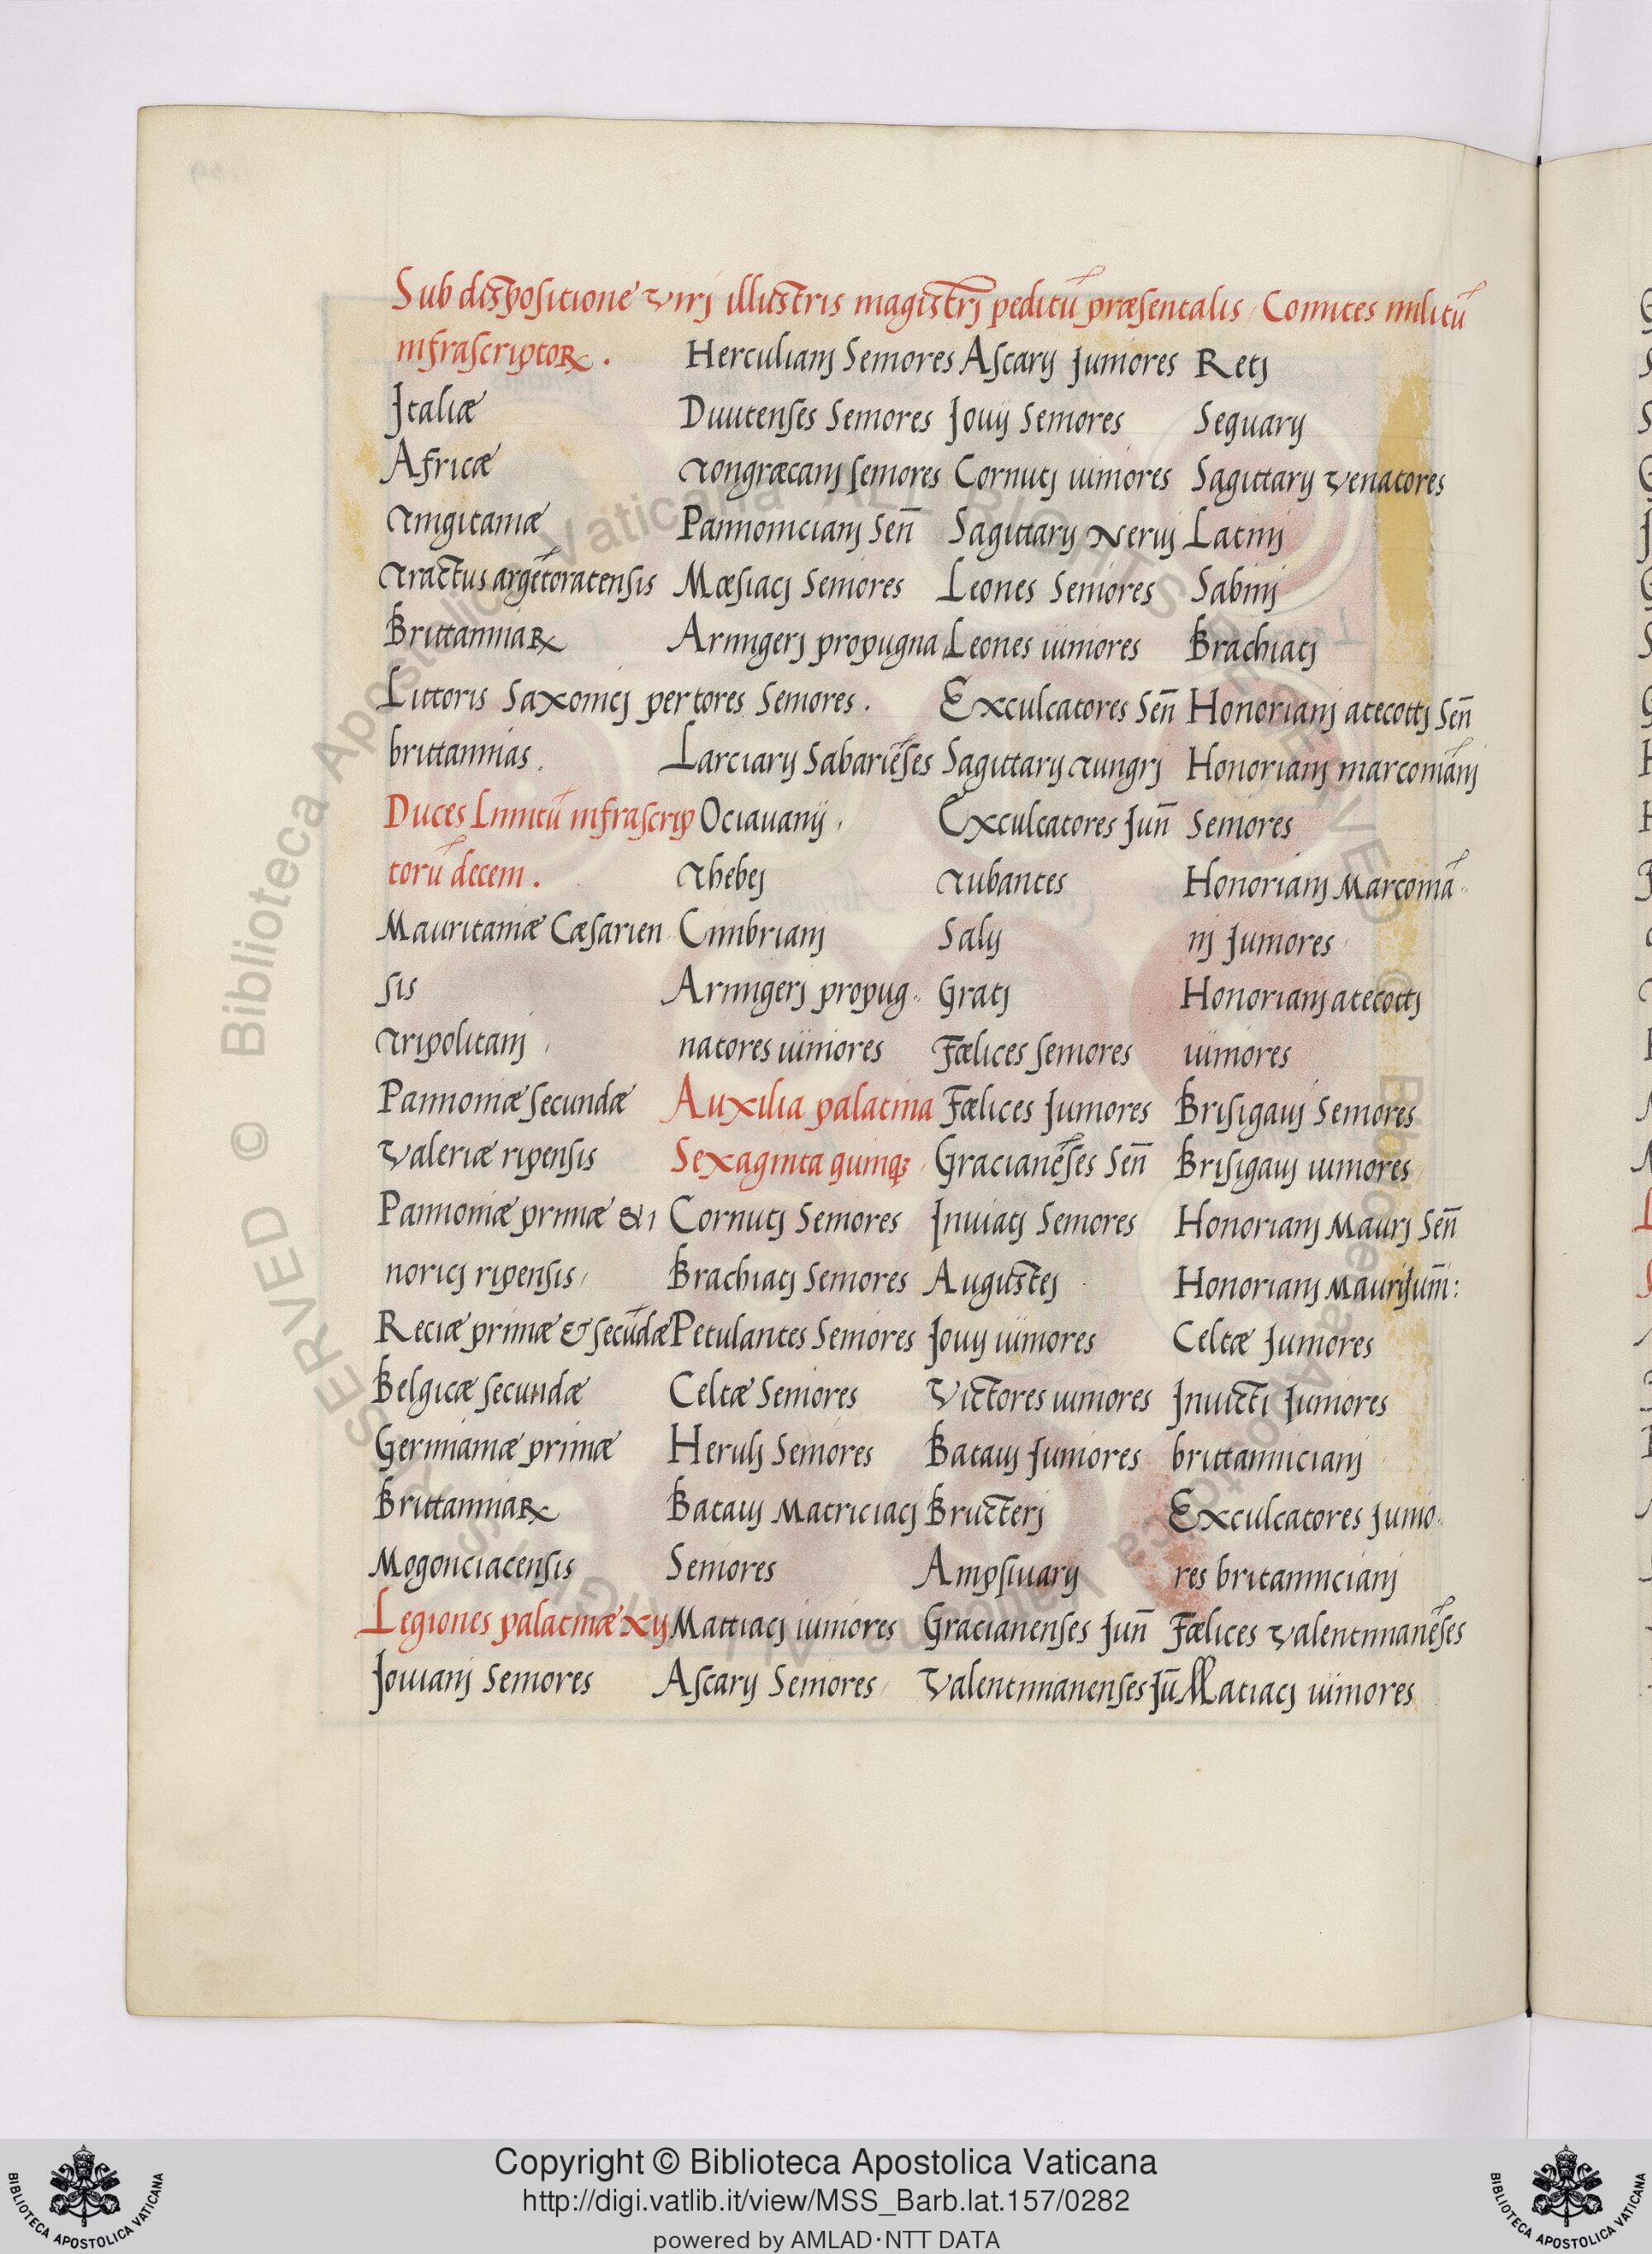 Sub dispositione Virj illustris magistrj peditū præsentalis, Comites militū
infrascriptoꝝ.
Italiæ
Africæ
Tingitaniæ
Tractus argētoratensis
Brittanniaꝝ
Littoris Saxonicj per
brittannias.
Duces Limitū infrascrip
torū decem.
Mauritaniæ Cæsarien
sis
Tripolitanj
Pannoniæ secundæ
Valeriæ ripensis
Pannoniæ primæ &
noricj ripensis,
Reciæ primæ & secūdæ
Belgicæ secundæ
Germaniæ primæ
Brittanniaꝝ
Mogonciacensis
Legiones palatinæ xij
Jouianj Seniores
Herculianj Seniores
Diuitenses Seniores
Tongræcanj seniores
Pannonicianj Sen̄
Mœsiacj Seniores
Armigerj propugna
tores Seniores.
Larciarij Sabariēses
Octauanij,
Thebej
Cimbrianj
Armigerj propug„
natores iuniores
Auxilia palatina
Sexaginta quinqꝫ
Cornutj Seniores
Brachiatj Seniores
Petulantes Seniores
Celtæ Seniores
Herulj Seniores
Batauj Matriciacj
Seniores
Mattiacj iuniores
Ascarij Seniores
Ascarij Juniores
Jouij Seniores
Cornutj iuniores
Sagittarij Neruij
Leones Seniores
Leones iuniores
Exculcatores Sen̄
Sagittarij Tungrj
Exculcatores Jun̄
Tubantes
Salij
Gratj
Fœlices seniores
Fœlices Juniores
Gracianēses Sen̄
Inuiatj Seniores
Augustej
Jouij iuniores
Victores iuniores
Batauj Juniores
Bructerj
Ampsiuarij
Gracianenses Jun̄
Valentinianenses Jū
Retj
Sequarij
Sagittarij Venatores
Latinj
Sabinj
Brachiatj
Honorianj atecottj Sen̄
Honorianj marcomānj
Seniores
Honorianj Marcomā„
nj Juniores
Honorianj atecottj
iuniores
Brisigauj Seniores
Brisigauj iuniores
Honorianj Maurj Sen̄
Honorianj Maurj Jun̄:
Celtæ Juniores
Inuicti Juniores
brittannicianj
Exculcatores Junio„
res britannicianj
Fœlices Valentinianēses
Matiacj iuniores
Copyright © Biblioteca Apostolica Vaticana
http://digi.vatlib.it/view/MSS_Barb.lat.157/0282
powered by AMLAD·NTT DATA
BIBLIOTECA APOSTOLICA VATICANA
BIBLIOTECA APOSTOLICA VATICANA